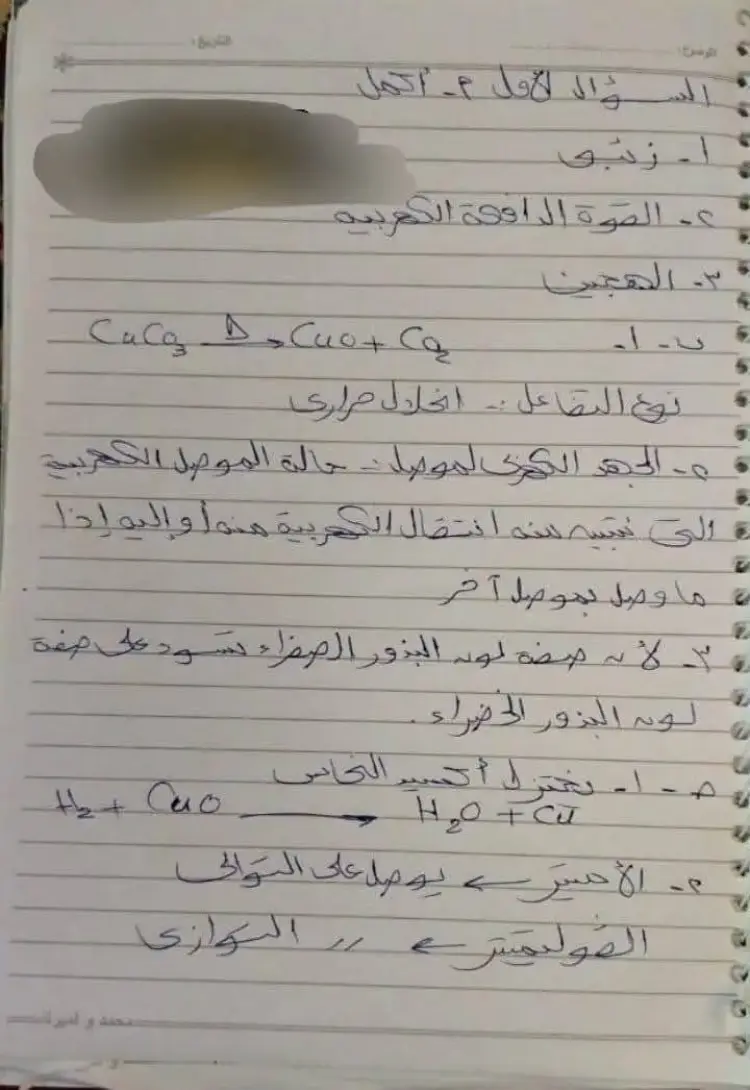 الموضوع: التاريخ:
السؤال الأول م- أكمل
١- زئبقى
٢- القوة الدافعة الكهربية
٣- الهجين
ب- ١- CuCO3 Δ→ CuO + CO2
نوع التفاعل :- انحلال حرارى
٢- الجهد الكهربى لموصل :- حالة الموصل الكهربية
التى تبين انتقال الكهربية منه أو إليه إذا
ما وصل بموصل آخر
٣- لأن صفة لون البذور الصفراء تسود على صفة
لون البذور الخضراء.
ص- ١- يختزل أكسيد النحاس
H2 + CuO → H2O + Cu
٢- الأميتر ← يوصل على التوالى
الفولتميتر ← // التوازى